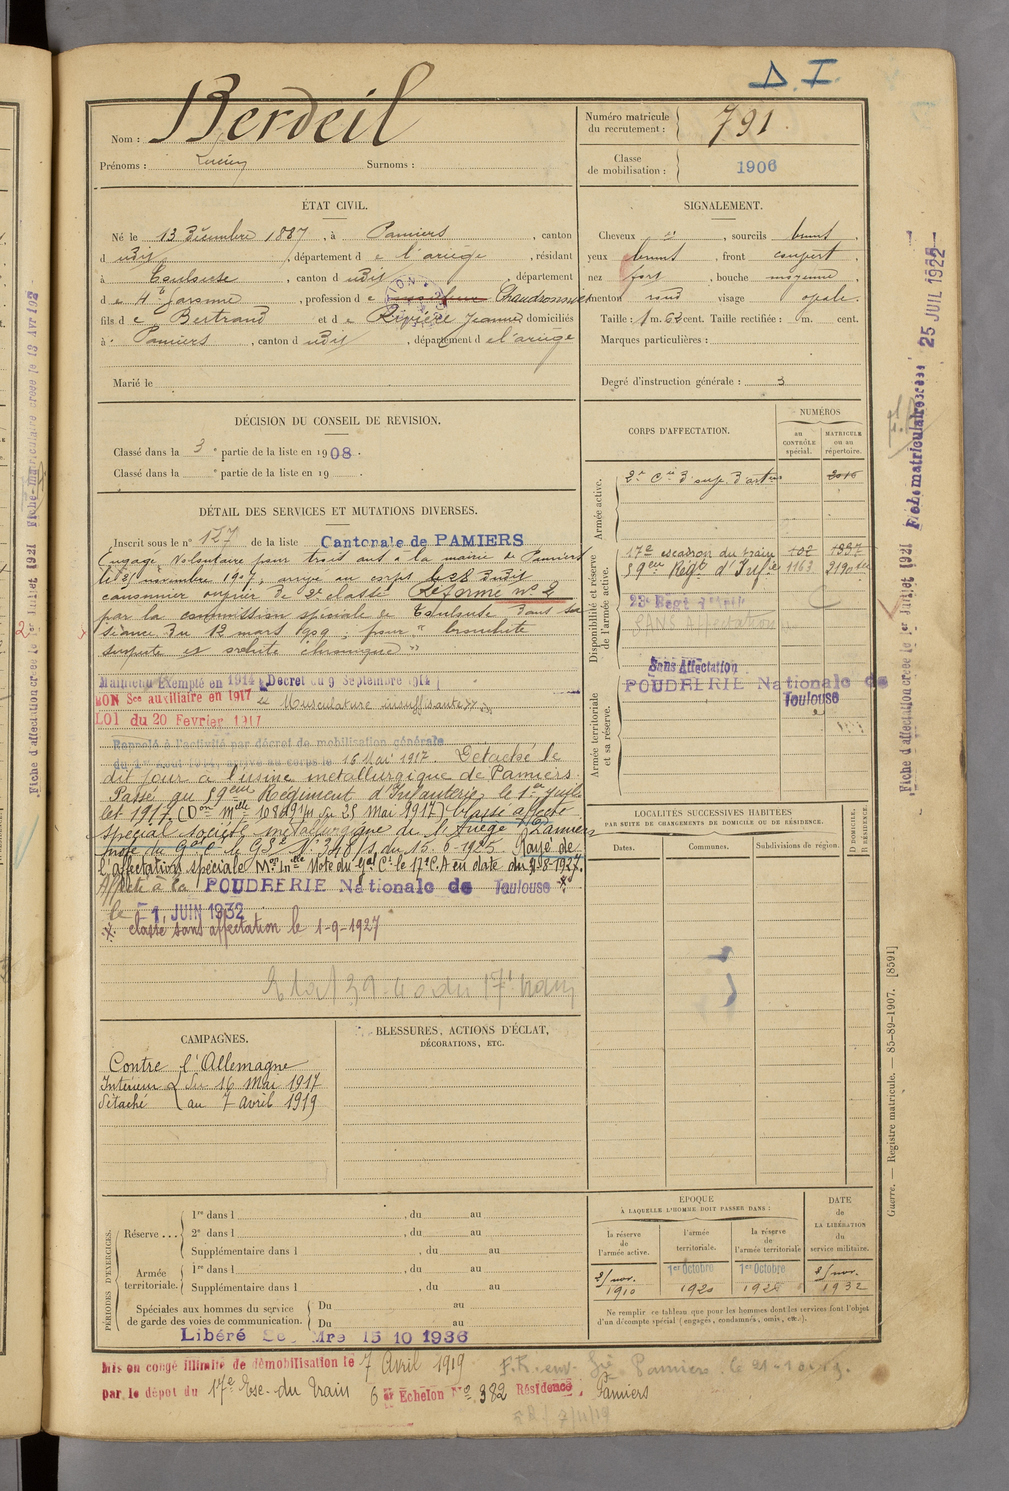 D. I.
Nom : Berdeil
Prénoms : Lucien Surnoms :
Numéro matricule du recrutement : 791.
Classe de mobilisation : 1906
ÉTAT CIVIL.
Né le 13 Décembre 1887, à Pamiers, canton
d udit, département de l'ariège, résidant
à Toulouse, canton d udit, département
d e Hte Garonne, profession d e Chaudronnier
fils d e Bertrand et d e Rivière Jeanne domiciliés
à Pamiers, canton d udit, département d e l'ariège
Marié le
SIGNALEMENT.
Cheveux et, sourcils brunt,
yeux brunt, front couvert,
nez fort, bouche moyenne,
menton rond visage ovale.
Taille : 1 m. 63 cent. Taille rectifiée : m. cent.
Marques particulières :
Degré d'instruction générale : 3
DÉCISION DU CONSEIL DE REVISION.
Classé dans la 3e partie de la liste en 1908.
Classé dans la e partie de la liste en 19 .
DÉTAIL DES SERVICES ET MUTATIONS DIVERSES.
Inscrit sous le n° 127 de la liste Cantonale de PAMIERS
Engagé Volontaire pour trois ans à la mairie de Pamiers
le 25 novembre 1907, arrivé au corps le 28 dudit
canonnier ouvrier de 2e classe Réformé n° 2
par la commission spéciale de Toulouse dans sa
séance du 12 mars 1909, pour " bronchite
suspecte et chronique "
Maintenu Exempté en 1914 Décret du 9 Septembre 1914
BON Sce auxiliaire en 1917 Musculature insuffisante
LOI du 20 Fevrier 1917
Rappelé à l'activité par décret de mobilisation générale
du 1er Août 1914, arrivé au corps le 16 Mai 1917. Détaché le
dit jour à l'usine métallurgique de Pamiers.
Passé au 59ème Régiment d'Infanterie le 1er Juil-
let 1917. (Don Melle 10849 du 25 Mai 1917) Classé affecté
spécial société métallurgique de l'Ariège Pamiers
note du Gal Ct le G.S.e N° 348/S du 15-6-1925 Rayé de
l'affectation spéciale Mon Inelle Note du Gal Ct le 17e C.A en date du 9-8-1927.
Affecté à la POUDRERIE Nationale de Toulouse
le -1 JUIN 1932
classé sans affectation le 1-9-1927
CORPS D'AFFECTATION.
NUMÉROS
au CONTRÔLE spécial.
MATRICULE ou au répertoire.
Armée active.
2e Cie d'ouv. d'artie
Disponibilité et réserve de l'armée active.
17e escadron du train 102 1337
59eme Régt d'Infie 1163
SANS Affectation
Armée territoriale et sa réserve.
Sans Affectation
POUDRERIE Nationale de
Toulouse
LOCALITÉS SUCCESSIVES HABITÉES
PAR SUITE DE CHANGEMENTS DE DOMICILE OU DE RÉSIDENCE.
Dates. Communes. Subdivisions de région. D DOMICILE. R RÉSIDENCE.
CAMPAGNES.
Contre l'Allemagne
Intérieur du 16 Mai 1917
détaché au 7 avril 1919
BLESSURES, ACTIONS D'ÉCLAT,
DÉCORATIONS, ETC.
PÉRIODES D'EXERCICES.
Réserve ...
1re dans l , du au
2e dans l , du au
Supplémentaire dans l , du au
Armée territoriale.
1re dans l , du au
Supplémentaire dans l , du au
Spéciales aux hommes du service de garde des voies de communication.
Du au
Du au
Libéré Mre 15 10 1936
EPOQUE
À LAQUELLE L'HOMME DOIT PASSER DANS :
la réserve de l'armée active.
l'armée territoriale.
la réserve de l'armée territoriale
DATE de LA LIBÉRATION du service militaire.
25 nov. 1910
1er Octobre 1920
1er Octobre
25 nov. 1932
Ne remplir ce tableau que pour les hommes dont les services font l'objet
d'un décompte spécial (engagés, condamnés, omis, etc.).
Mis en congé illimité de démobilisation le 7 Avril 1919
par le dépot du 17e Esc. du Train 6 Echelon N° 382 Résidence, Pamiers
Pamiers
Fiche matriculaire créée 25 JUIL 1922
Fiche d'affectation créée le 1er Juillet 1921
Guerre. — Registre matricule. — 85-89-1907. [8591]
Fiche matriculaire créée le
Fiche d'affectation créée le 1er Juillet 1921